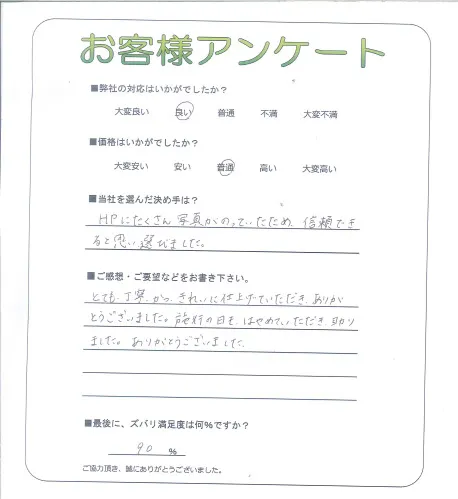 お客様アンケート
■弊社の対応はいかがでしたか？
大変良い 良い 普通 不満 大変不満
■価格はいかがでしたか？
大変安い 安い 普通 高い 大変高い
■当社を選んだ決め手は？
HPにたくさん写真がのっていたため、信頼でき
ると思い選びました。
■ご感想・ご要望などをお書き下さい。
とても、丁寧かつ、きれいに仕上げていただき、ありが
とうございました。施行の日も、はやめていただき、助り
ました。ありがとうございました。
■最後に、ズバリ満足度は何%ですか？
90 %
ご協力頂き、誠にありがとうございました。